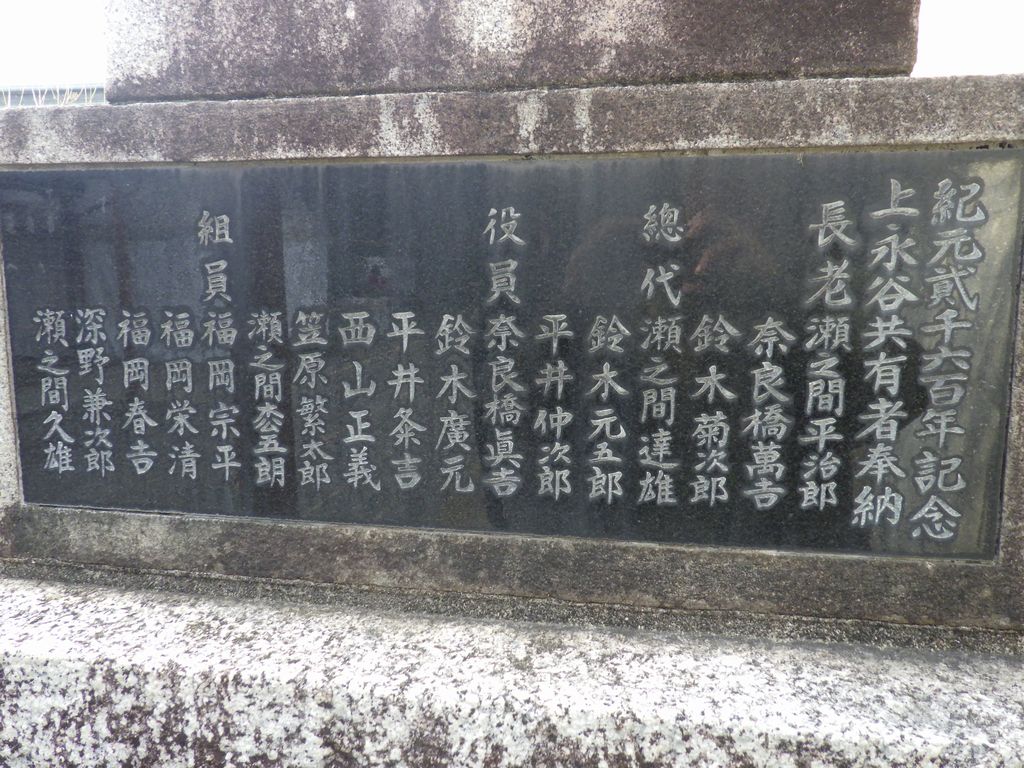 紀元貳千六百年記念
上永谷共有者奉納
長老 瀬之間平治郎
奈良橋萬吉
鈴木菊次郎
總代 瀬之間達雄
鈴木元五郎
平井仲次郎
役員 奈良橋眞吉
鈴木廣元
平井粂吉
西山正義
笠原繁太郎
瀬之間五朗
組員 福岡宗平
福岡栄清
福岡春吉
深野兼次郎
瀬之間久雄